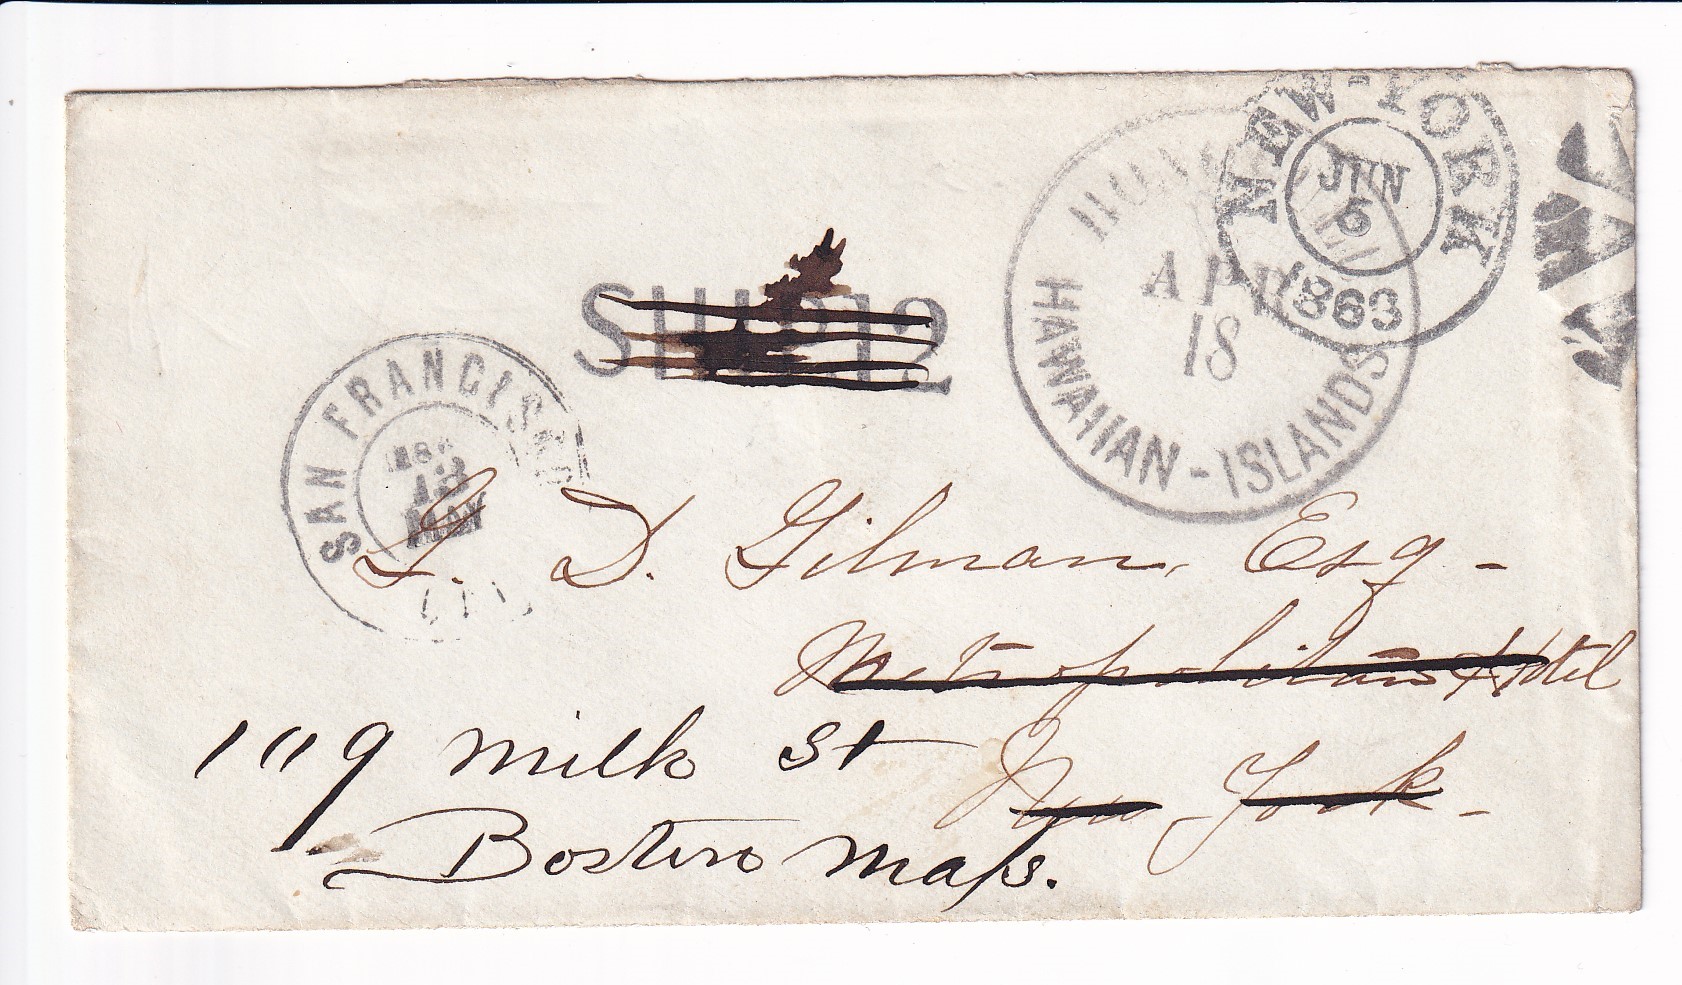 NEW-YORK
JUN
6
1863
HAWAIIAN-ISLANDS
18
SHIP 12
SAN FRANCISCO
G. D. Gilman, Esq -
Metropolitan Hotel
New York -
109 Milk St
Boston Mass.